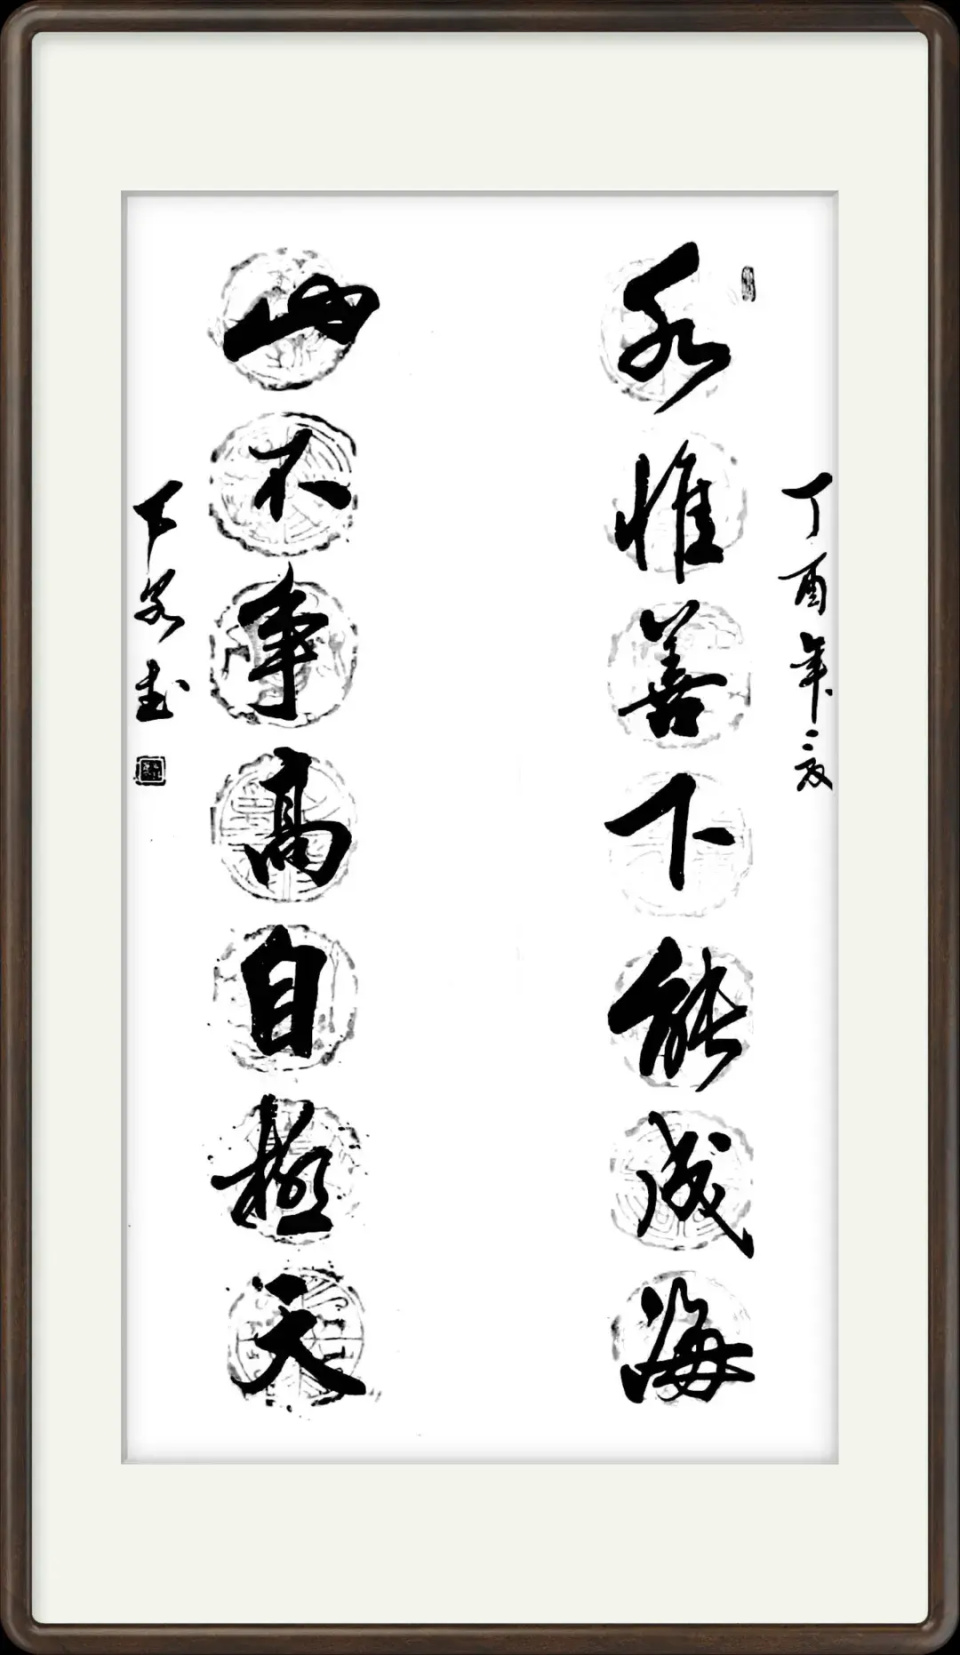 丁酉年
水惟善下能成海
山不争高自极天